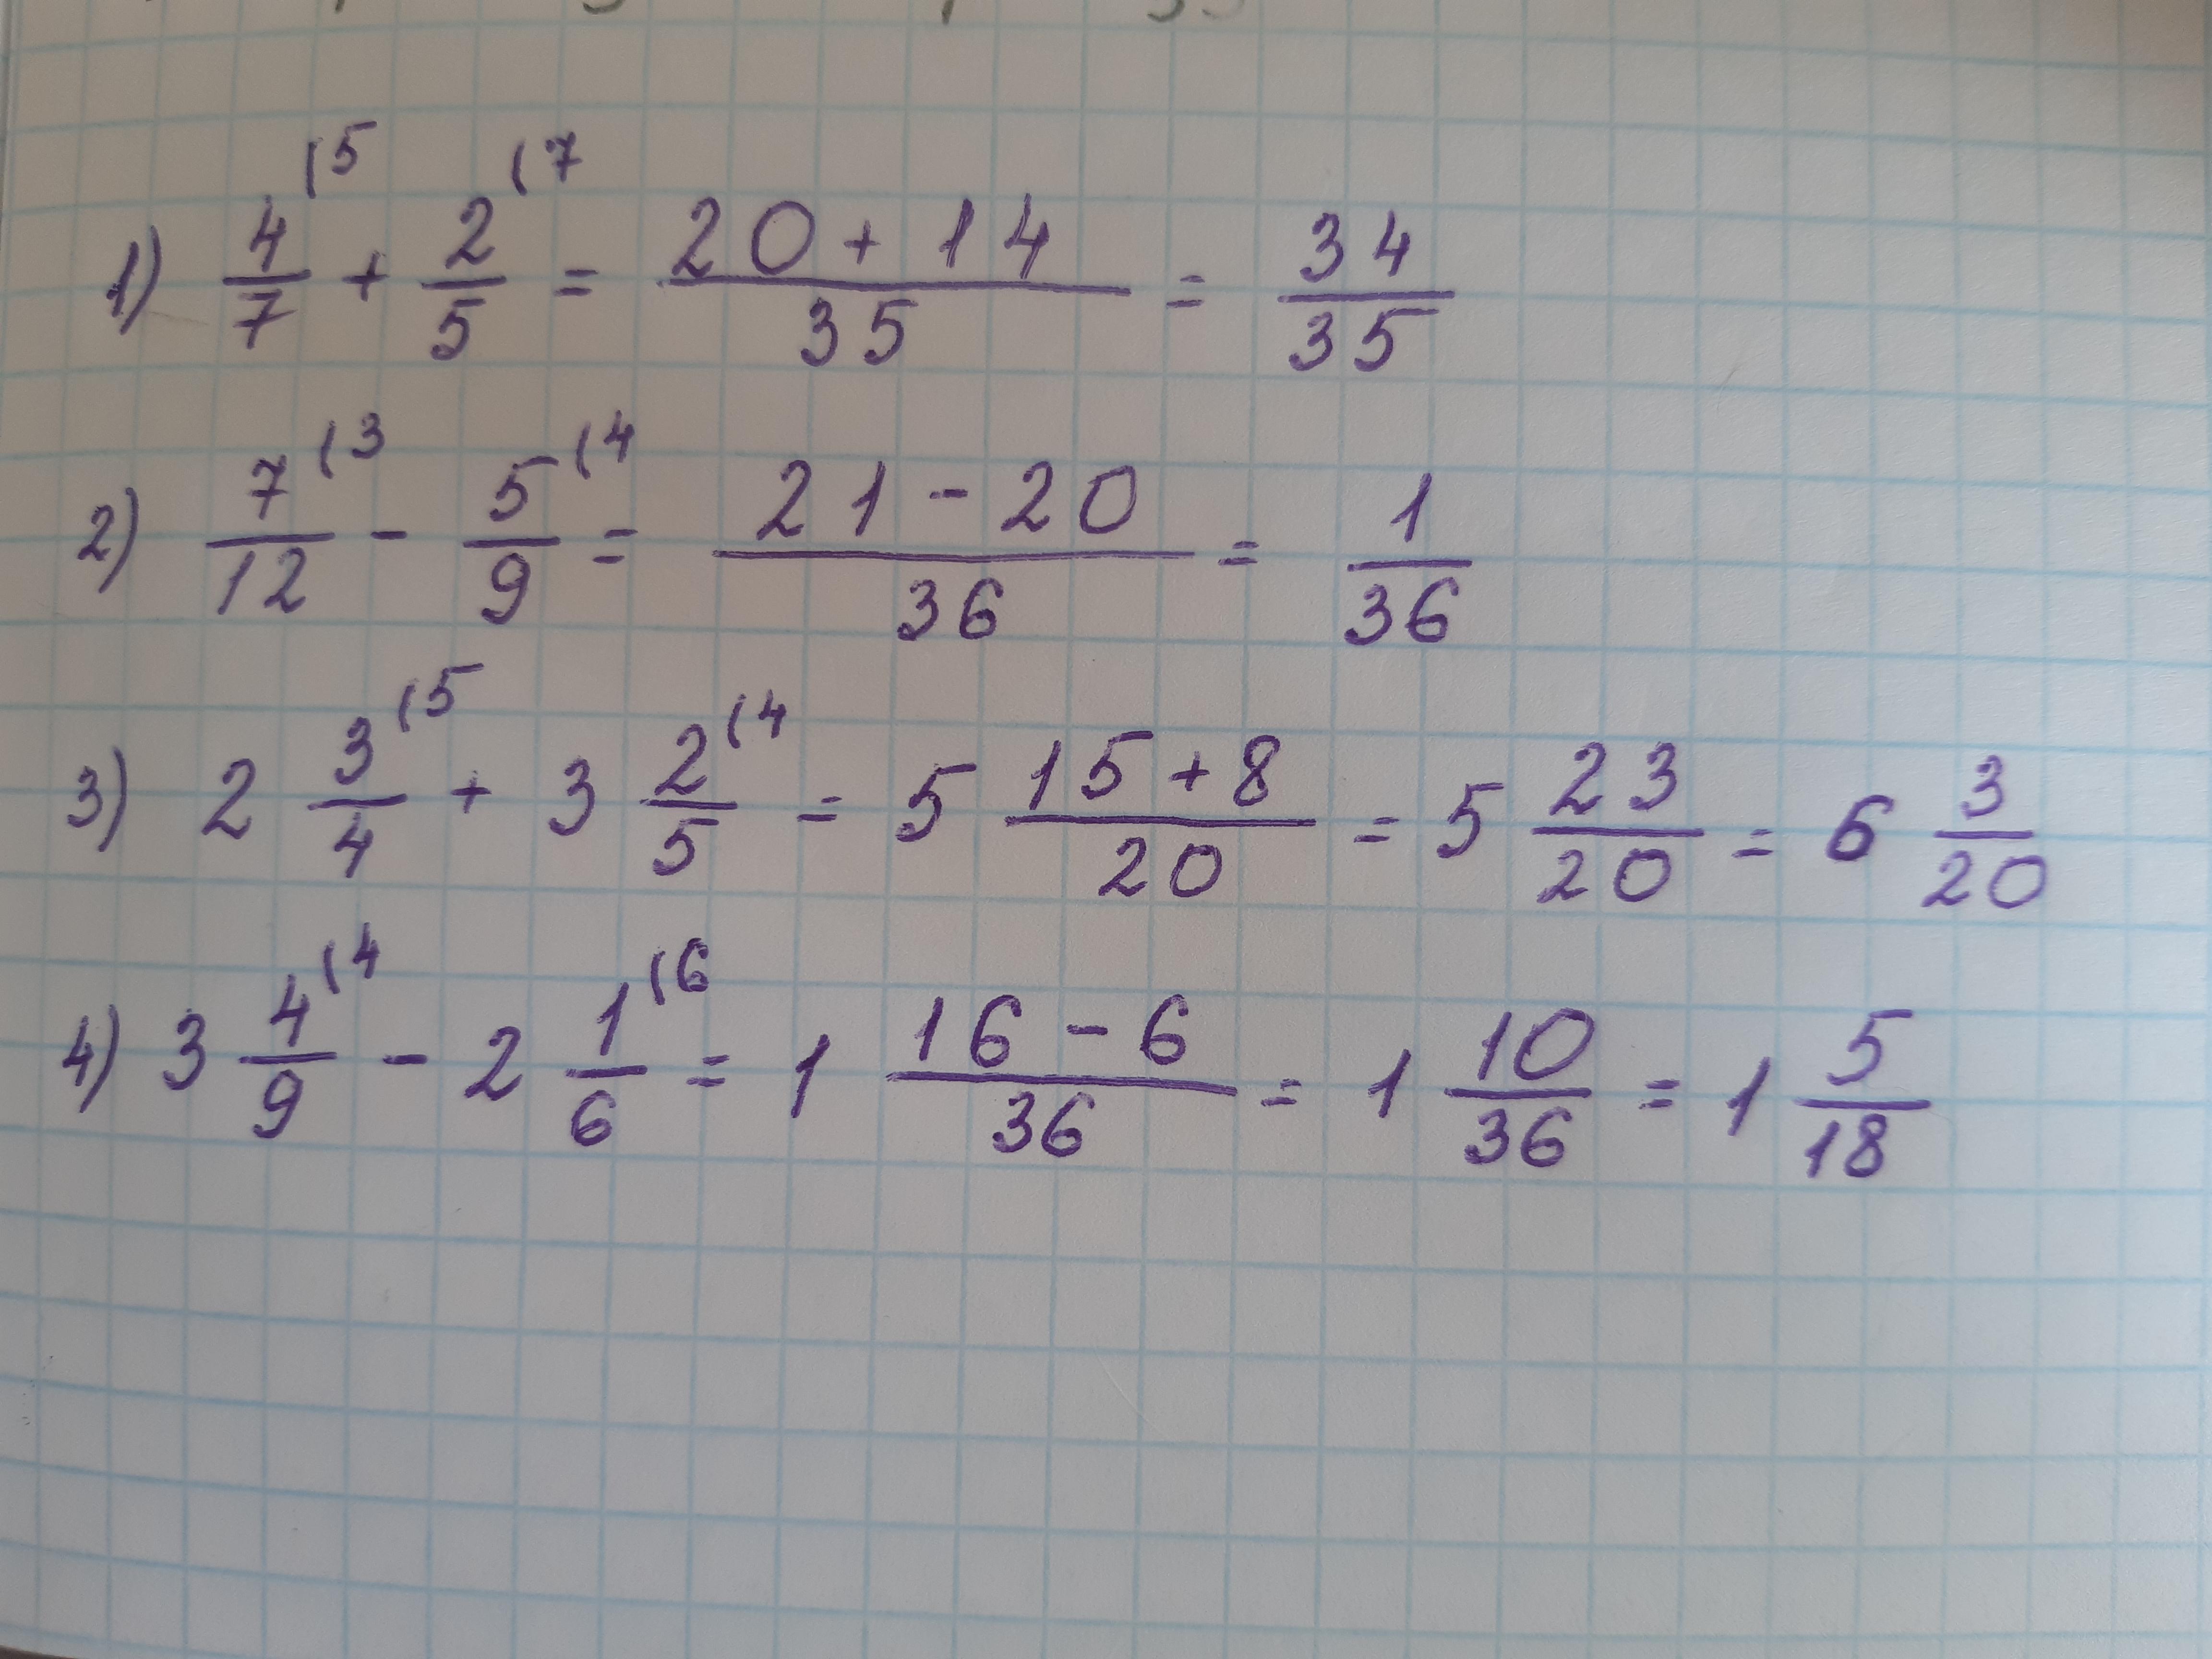 1) 4/7 (5 + 2/5 (7 = (20 + 14)/35 = 34/35
2) 7/12 (3 - 5/9 (4 = (21 - 20)/36 = 1/36
3) 2 3/4 (5 + 3 2/5 (4 = 5 (15 + 8)/20 = 5 23/20 = 6 3/20
4) 3 4/9 (4 - 2 1/6 (6 = 1 (16 - 6)/36 = 1 10/36 = 1 5/18